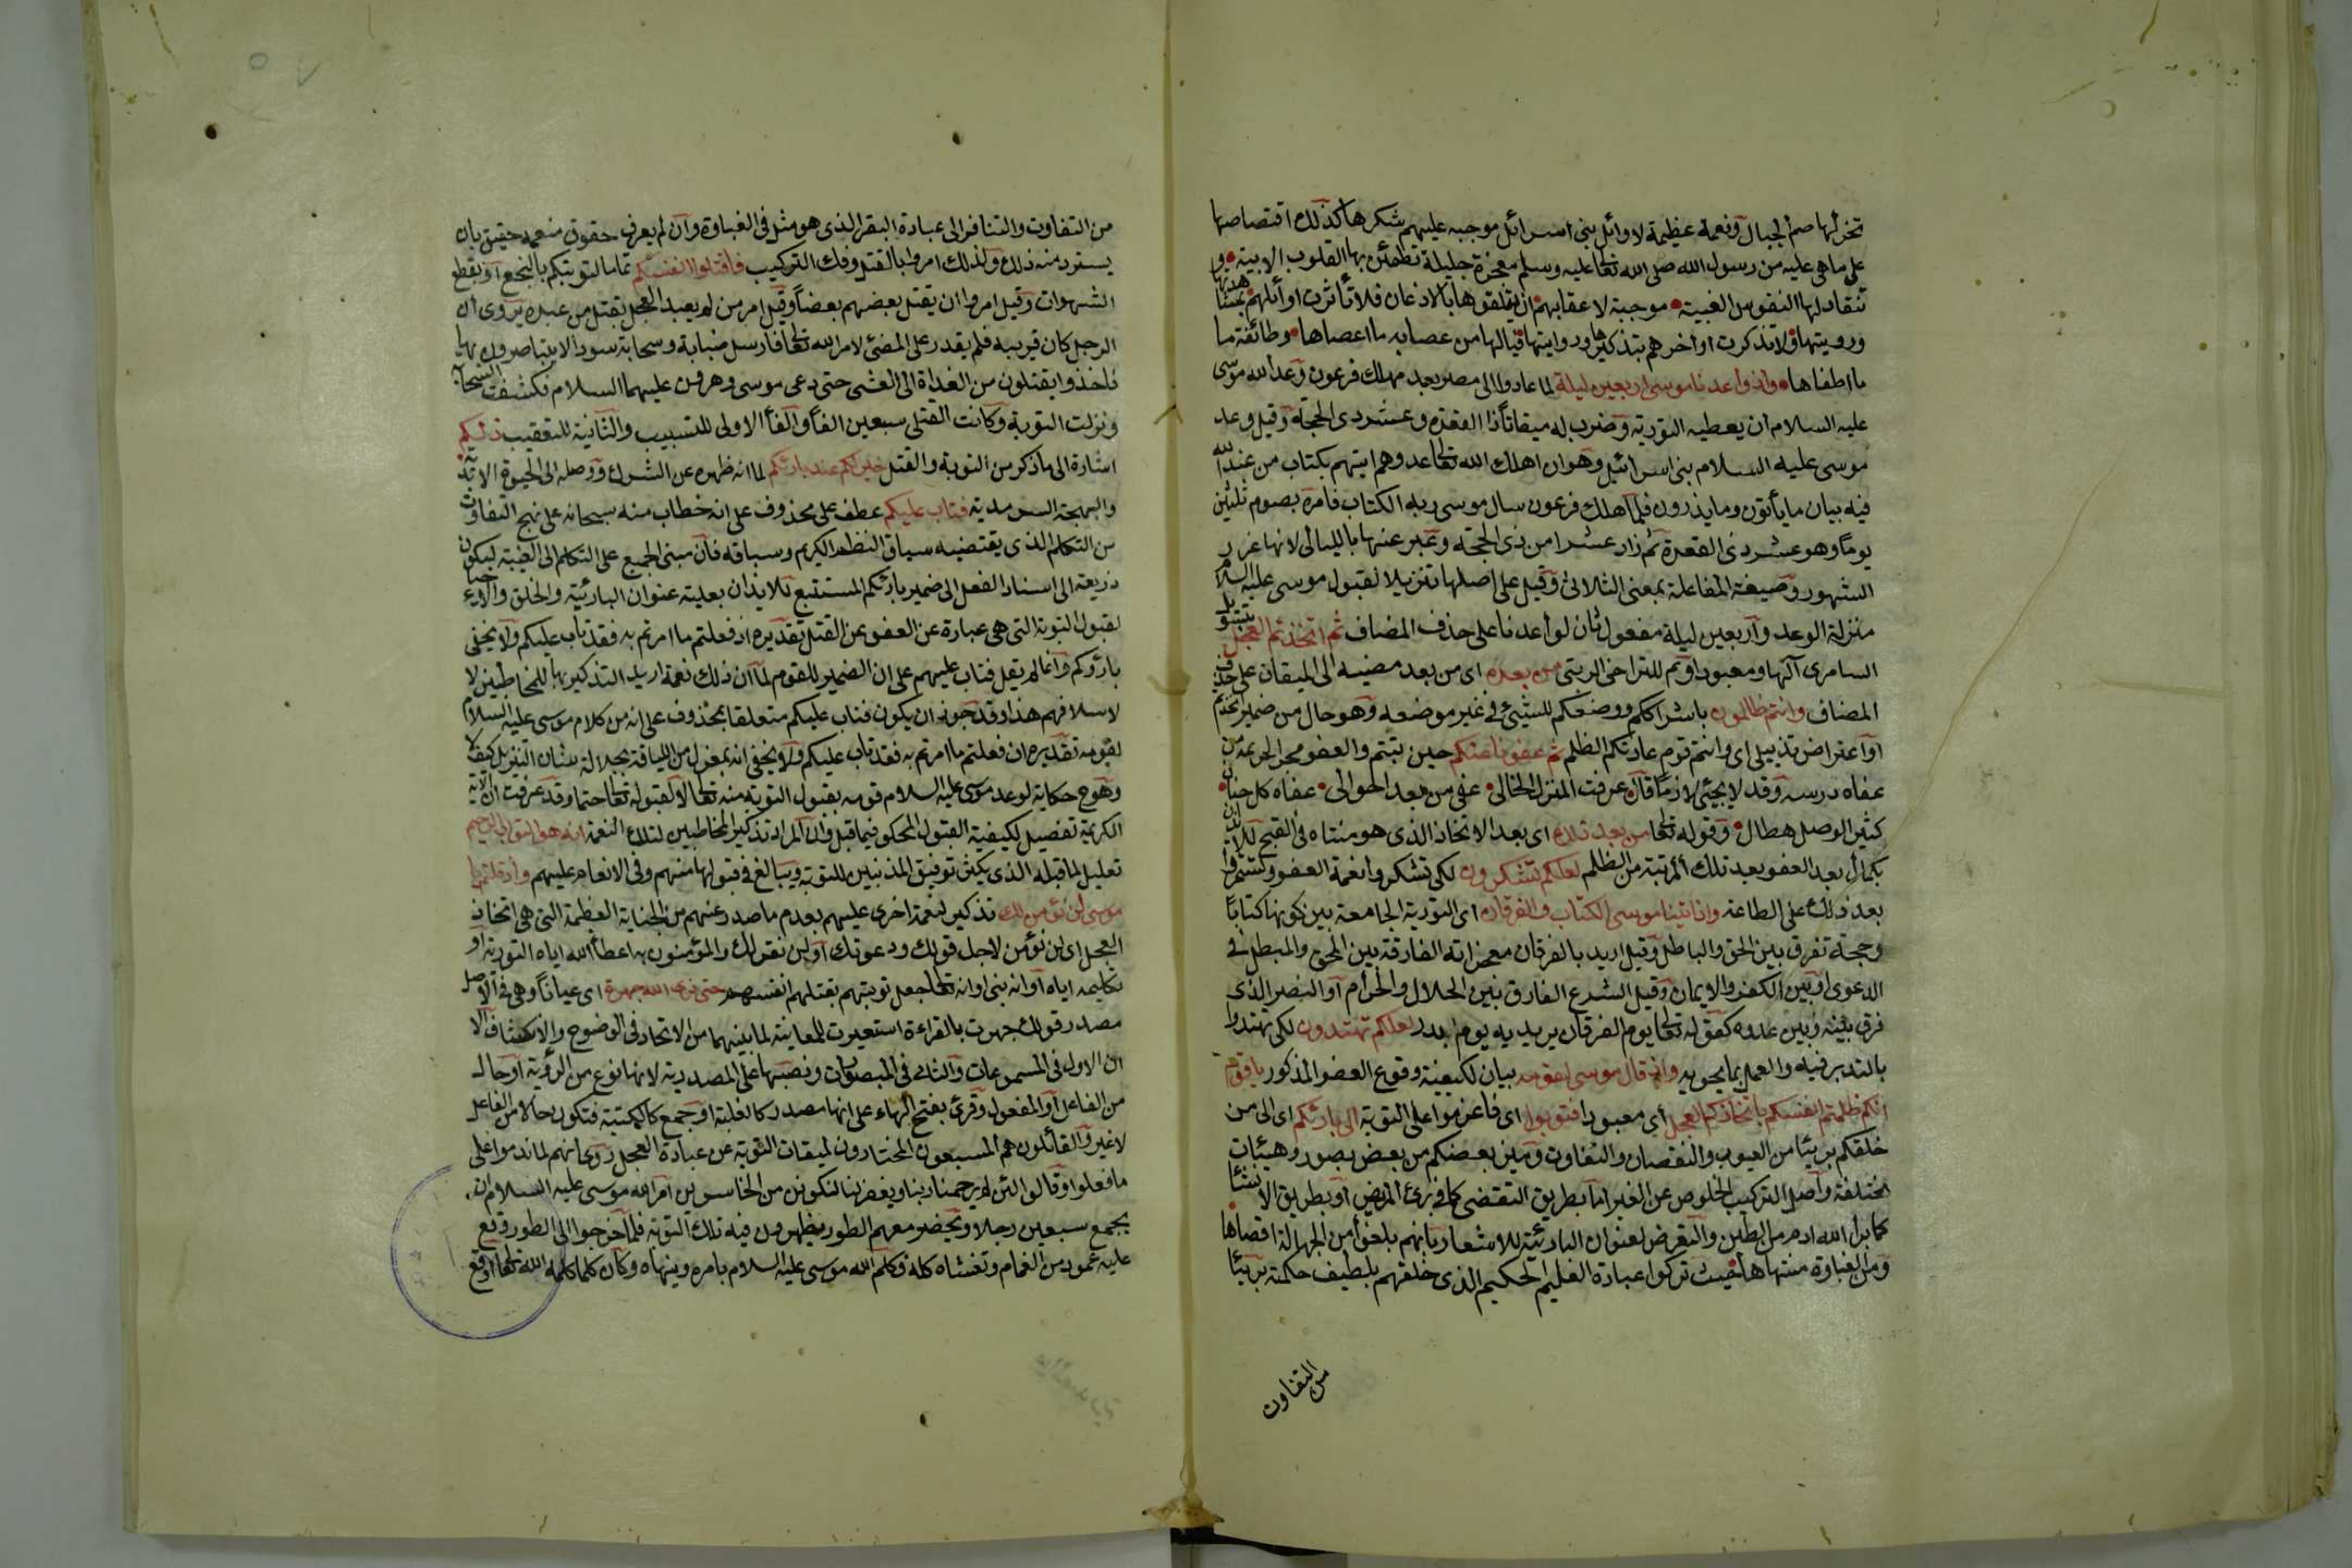 تخر لها صم الجبال ونعمة عظيمة لاوائل بنى اسرائل موجبه عليهم شكرها كذلك اقتصاصها
على ما هى عليه من رسول الله صلى الله تعا عليه وسلم معجزة جليلة تطمئن بها القلوب الابية و
تنقاد لها النفوس الغبية موجبة لاعقابهم ان يتلقوها بالاذعان فلا تأثرت اوائلهم بمشاهدتها
ورويتها ولا تذكرت اواخرهم بتذكيرها وروايتها فيالها من عصابه ما اعصاها وطائفة ما
ما اطغاها واذ واعدنا موسى اربعين ليلة لما عادوا الى مصر بعد مهلك فرعون وعد الله موسى
عليه السلام ان يعطيه التورية وضرب له ميقاتا ذا القعدة وعشر ذى الحجة وقيل وعد
موسى عليه السلام بنى اسرائيل وهو ان اهلك الله تعا عدوهم ايتهم بكتاب من عند الله
فيه بيان ما يأتون وما يذرون فلما هلك فرعون سال موسى ربه الكتاب فامره بصوم ثلثين
يوما وهو عشر ذى القعدة ثم زاد عشرا من ذى الحجة وعبر عنها بالليالى لانها غرر
الشهور وصيغة المفاعلة بمعنى الثلاثى وقيل على اصلها تنزيلا لقبول موسى عليه السلام
منزلة الوعد واربعين ليلة مفعول ثان لواعدنا على حذف المضاف ثم اتخذتم العجل بتسويل
السامرى آلها ومعبودا وثم للتراخى الرتبى من بعده اى من بعد مضيه الى الميقات على حذف
المضاف وانتم ظالمون باشراككم ووضعكم للشيئ فى غير موضعه وهو حال من ضمير اتخذتم
او اعتراض تذييلى اى وانتم قوم عادتكم الظلم ثم عفونا عنكم حين تبتم والعفو محو الجريمة من
عفاه درسه وقد لا يجئى لازما قال عرفت المنزل الخالى عفى من بعد احوالى عفاه كل حنان
كثير الوصل هطال وقوله تعا من بعد ذلك اى بعد الاتخاذ الذى هو متناه فى القبح للايذان
بكمال بعد العفو بعد تلك المرتبة من الظلم لعلكم تشكرون لكى تشكروا نعمة العفو وتستمروا
بعد ذلك على الطاعة واذ اتينا موسى الكتاب والفرقان اى التورية الجامعة بين كونها كتابا
وحجة تفرق بين الحق والباطل وقيل اريد بالفرقان معجزاته الفارقة بين المحق والمبطل فى
الدعوى او بين الكفر والايمان وقيل الشرع الفارق بين الحلال والحرام او النصر الذى
فرق بينه وبين عدوه كقوله تعا يوم الفرقان يريد به يوم بدر لعلكم تهتدون لكى تهتدوا
بالتدبر فيه والعمل بما يحويه واذ قال موسى لقومه بيان لكيفية وقوع العفو المذكور يا قوم
انكم ظلمتم انفسكم باتخاذكم العجل اى معبودا فتوبوا اى فاعزموا على التوبة الى بارئكم اى الى من
خلقكم بريئا من العيوب والنقصان والتفاوت وميز بعضكم من بعض بصور وهيئات
مختلفة واصل التركيب الخلوص عن الغير اما بطريق التقضى كما فى برئ المريض او بطريق الانشاء
كما برا الله ادم من الطين والتعرض لعنوان البارئية للاشعار بانهم بلغوا من الجهالة اقصاها
ومن الغباوة منتهاها حيث تركوا عبادة العليم الحكيم الذى خلقهم بلطيف حكمته بريئا
من التفاوت
من التفاوت والتنافر الى عبادة البقر الذى هو مثل فى الغباوة وان لم يعرف حقوق منعمه حقيق بان
يسترد منه ذلك ولذلك امروا بالقتل وفك التركيب فاقتلوا انفسكم تماما لتوبتكم بالبخع او بقطع
الشهوات وقيل امروا ان يقتل بعضهم بعضا وقيل امر من لم يعبد العجل بقتل من عبده يروى ان
الرجل كان قريبه فلم يقدر على المضئ لامر الله تعا فارسل ضبابة وسحابة سودا لا يتباصرون بها
فاخذوا يقتلون من الغداة الى العشى حتى دعى موسى وهرون عليهما السلام فكشفت السحابة
ونزلت التوبة وكانت القتلى سبعين الفا والفا الاولى للتسبيب والثانية للتعقيب ذلكم
اشارة الى ما ذكر من التوبة والقتل خير لكم عند بارئكم لما انه طهره عن الشرك ووصله الى الحيوة الابدية
والبهجة السرمدية فتاب عليكم عطف على محذوف على انه خطاب منه سبحانه على نهج التفاوت
من التكلم الذى يقتضيه سياق النظم الكريم وسباقه فان مبنى الجميع على التكلم الى الغيبة ليكون
ذريعة الى اسناد الفعل الى ضمير بارئكم المستتبع للايذان بعلية عنوان البارئية والخلق والاحياء
لقبول التوبة التى هى عبارة عن العفو عن القتل تقديره اذ فعلتم ما امرتم به فقد تاب عليكم ولا يخفى
بارؤكم وانما لم يقل فتاب عليهم على ان الضمير للقوم لما ان ذلك نعمة اريد التذكير بها للمخاطبين لا
لاسلافهم هذا وقد جوز ان يكون فتاب عليكم متعلقا بمحذوف على انه من كلام موسى عليه السلام
لقومه تقديره ان فعلتم ما امرتم به فقد تاب عليكم ولا يخفى انه بمعزل من اللياقة بجلالة شان التنزيل كيف لا
وهو ح حكاية لوعد موسى عليه السلام قومه بقبول التوبة منه تعا لا لقبوله تعا حتما وقد عرفت ان الاية
الكريمة تفصيل لكيفية القبول المحكى فيما قبل وان المراد تذكير المخاطبين لتلك النعمة انه هو التواب الرحيم
تعليل لما قبله الذى يكثر توفيق المذنبين للتوبة ويبالغ فى قبولها منهم وفى الانعام عليهم واذ قلتم يا
موسى لن نؤمن لك تذكير لنعمة اخرى عليهم بعدم ما صدر عنهم من الجناية العظيمة التى هى اتخاذ
العجل اى لن نؤمن لاجل قولك ودعوتك او لن نقر لك والمؤمنون به اعطأ الله اياه التورية او
تكليمه اياه او انه نبى او انه تعا جعل توبتهم بقتلهم انفسهم حتى نرى الله جهرة اى عيانا وهى فى الاصل
مصدر قولك جهرت بالقراءة استعيرت للمعاينة لما بينهما من الاتحاد فى الوضوح والانكشاف الا
ان الاول فى المسموعات والثانى فى المبصرات ونصبها على المصدرية لانها نوع من الرؤية او حال
من الفاعل او المفعول وقرئ بفتح الهاء على انها مصدر كالغلبة او جمع كالكتبة فتكون حالا من الفاعل
لا غير والقائلون هم السبعون المختارون لميقات التوبة عن عبادة العجل روى انهم لما ندموا على
ما فعلوا وقالوا لئن لم يرحمنا ربنا ويغفر لنا لنكونن من الخاسرين امر الله موسى عليه السلام ان
يجمع سبعين رجلا ويحضر معهم الطور يظهرون فيه تلك التوبة فلما خرجوا الى الطور وقع
عليه عمود من الغمام وتغشاه كله وكلم الله موسى عليه السلام يامره وينهاه وكان كلما كلمه الله تعا اوقع